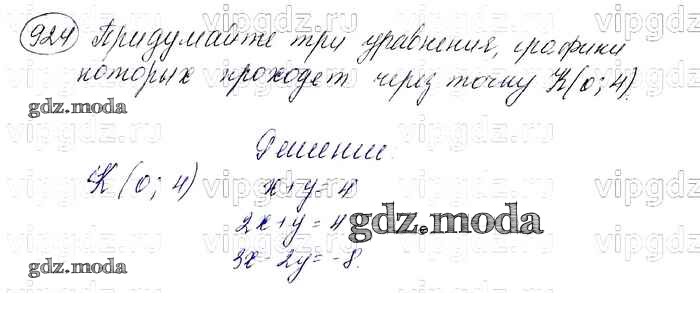 924 Придумайте три уравнения, графики
которых проходет через точку K(0; 4).
gdz.moda
Решение.
K(0; 4) x+y=4
2x+y=4
gdz.moda
3x-2y=-8.
gdz.moda